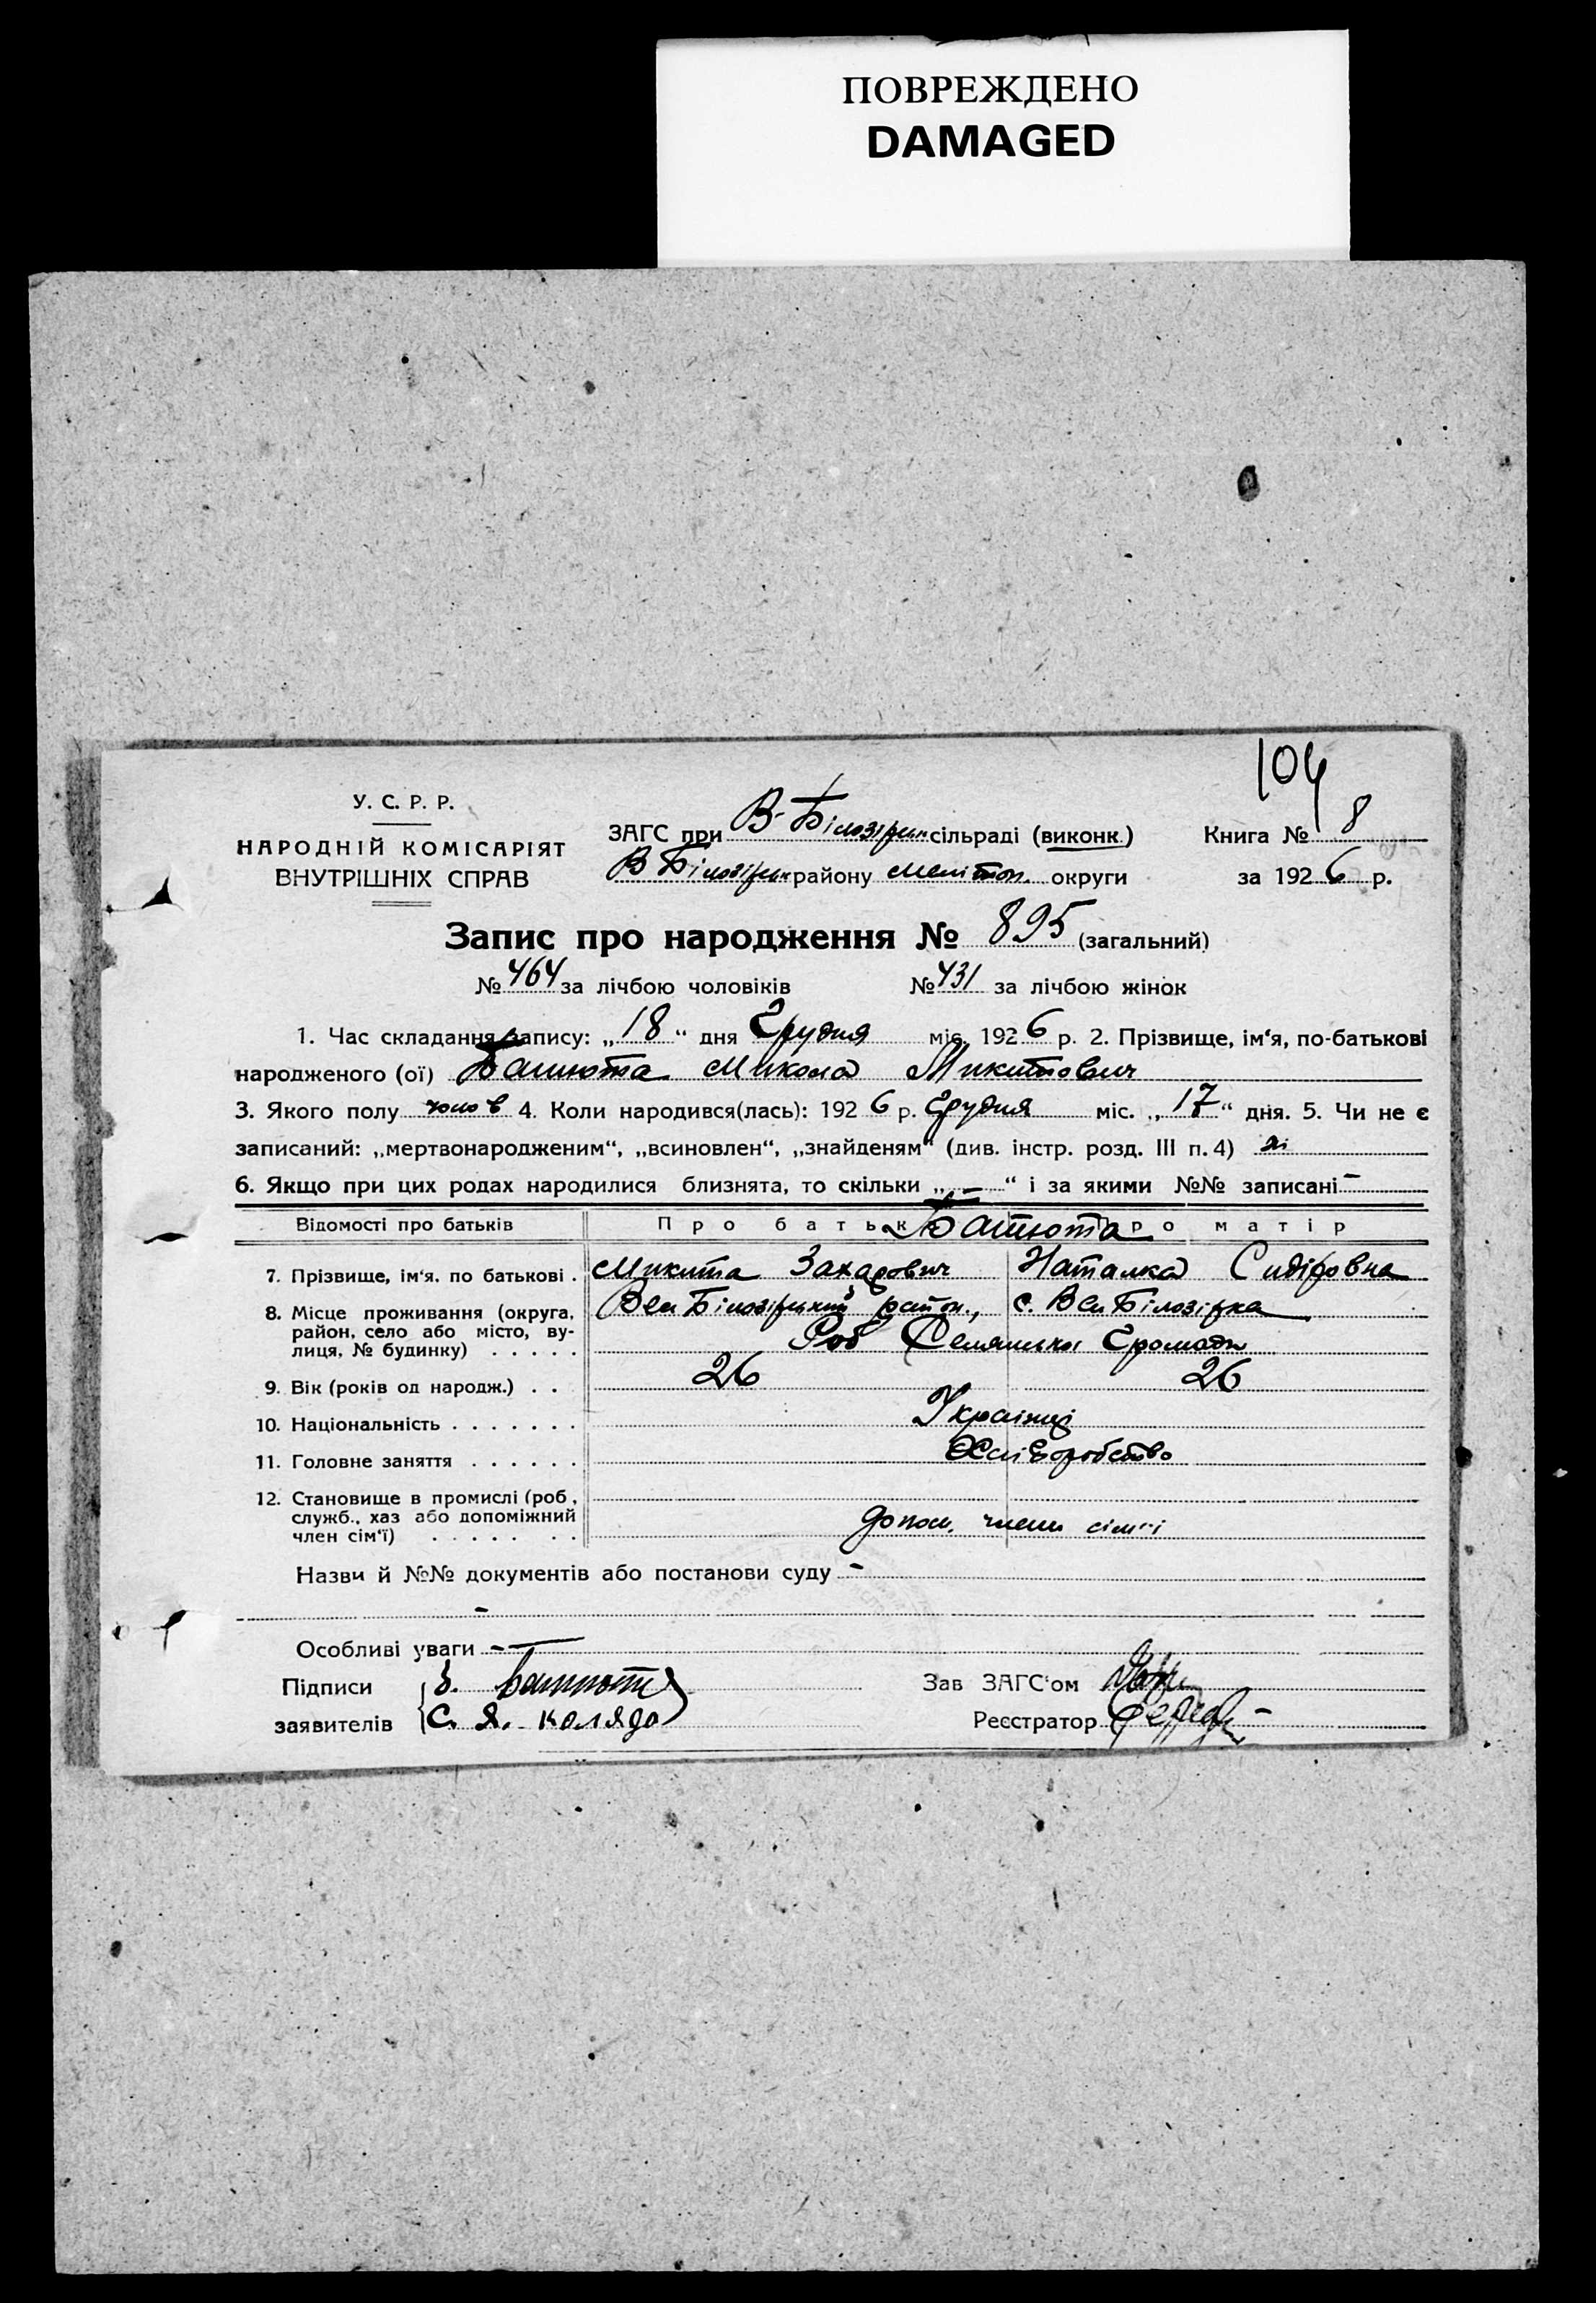 ПОВРЕЖДЕНО
DAMAGED
104
У. С. Р. Р.
НАРОДНІЙ КОМІСАРІЯТ
ВНУТРІШНІХ СПРАВ
ЗАГС при В-Білозірськ сільраді (виконк.)
В Білозірськ району Меліт оп. округи
Книга № 8
за 1926 р.
Запис про народження № 895 (загальний)
№ 464 за лічбою чоловіків № 431 за лічбою жінок
1. Час складання запису: „18“ дня Грудня міс. 1926 р. 2. Прізвище, ім‘я, по-батькові
народженого (ої) Батюта Микола Микитович
3. Якого полу чолов 4. Коли народився(лась): 1926 р. Грудня міс. „17“ дня. 5. Чи не є
записаний: „мертвонародженим“, „всиновлен“, „знайденям“ (див. інстр. розд. III п. 4) ні
6. Якщо при цих родах народилися близнята, то скільки „—“ і за якими №№ записані —
Відомості про батьків Про батьк Батюта ро матір
7. Прізвище, ім‘я. по батькові . Микита Захарович Наталка Сидіровна
8. Місце проживання (округа, Вел Білозірський район., с. Вел Білозірка
район, село або місто, ву-
лиця, № будинку) . . . . . Громади
9. Вік (років од народж.) . . 26 26
10. Національність . . . . . . . Українці
11. Головне заняття . . . . . . Хліборобство
12. Становище в промислі (роб,
служб., хаз або допоміжний
член сім‘ї) . . . . . . . допом. члени сім'ї
Назви й №№ документів або постанови суду —
—
Особливі уваги —
Підписи Батюта
заявителів С. Я. Коляда
Зав ЗАГС‘ом
Реєстратор